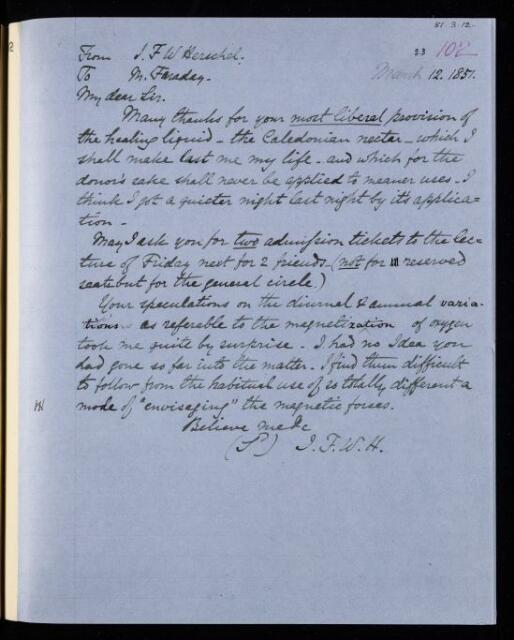 51. 3. 12.
23 107
From J. F W Herschel.
To M. Faraday.
March 12. 1851.
My dear Sir.
Many thanks for your most liberal provision of
the healing liquid - the Caledonian nectar - which I
shall make last me my life - and which for the
donor's sake shall never be applied to meaner uses - I
think I got a quieter night last night by its applica=
tion -
May I ask you for two admission tickets to the lec=
ture of Friday next for 2 friends (not for reserved
seats but for the general circle.)
Your speculations on the diurnal & annual varia-
tions as referable to the magnetization of oxygen
took me quite by surprise - I had no Idea you
had gone so far into the matter. I find them difficult
to follow from the habitual use of so totally different a
mode of "envisaging" the magnetic forces.
Believe me &c
(S) J. F. W. H.